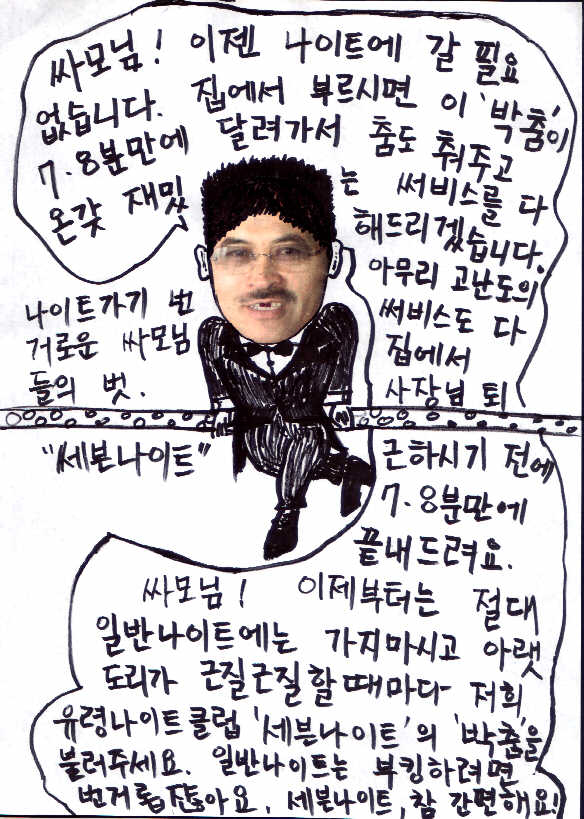 싸모님! 이젠 나이트에 갈 필요
없습니다. 집에서 부르시면 이 '박춤'이
7.8분만에 달려가서 춤도 춰주고
온갖 재밌는 써비스를 다
해드리겠습니다.
아무리 고난도의
써비스도 다
집에서
사장님 퇴
근하시기 전에
7.8분만에
끝내드려요.
나이트가기 번
거로운 싸모님
들의 벗.
"세븐나이트"
싸모님! 이제부터는 절대
일반나이트에는 가지마시고 아랫
도리가 근질근질할때마다 저희
유령나이트클럽 '세븐나이트'의 '박춤'을
불러주세요. 일반나이트는 부킹하려면
번거롭잖아요. 세븐나이트, 참 간편해요!